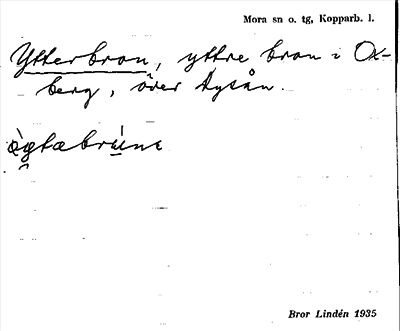 Mora sn o. tg, Kopparb. l.
Ytterbron, yttre bron i Ox-
berg, över Aysån.
Bror Lindén 1935